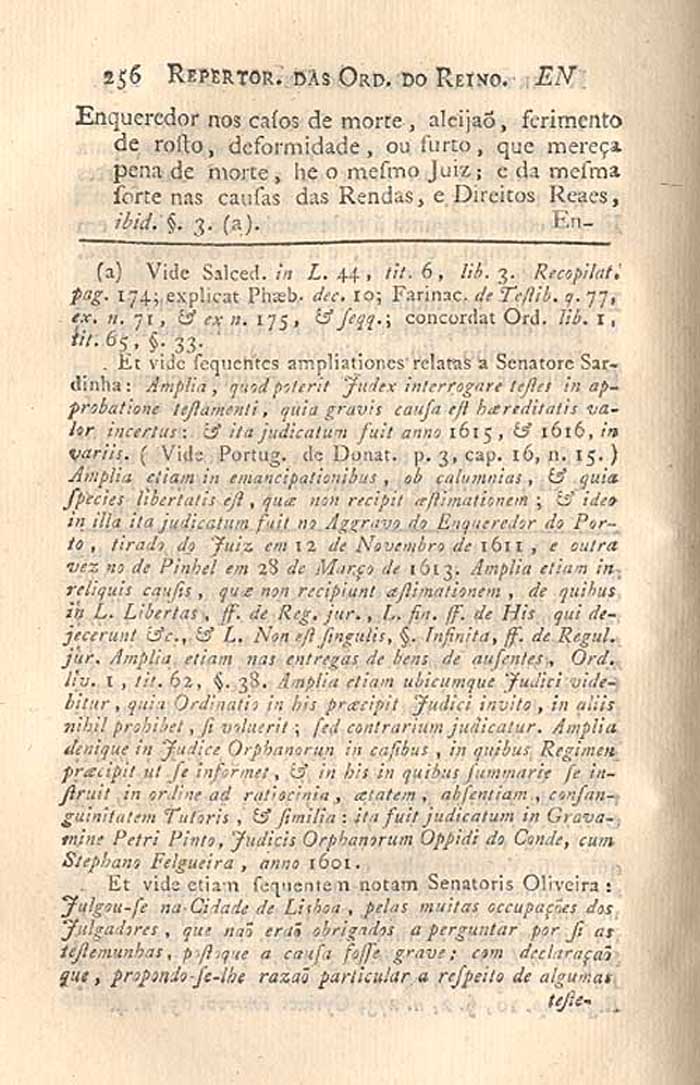 256 REPERTOR. DAS ORD. DO REINO. EN
Enqueredor nos caſos de morte, aleijaõ, ferimento
de roſto, deformidade, ou furto, que mereça
pena de morte, he o meſmo Juiz; e da meſma
ſorte nas cauſas das Rendas, e Direitos Reaes,
ibid. §. 3. (a). En-
(a) Vide Salced. in L. 44, tit. 6, lib. 3. Recopilat.
pag. 174; explicat Phæb. dec. 10; Farinac. de Teſtib. q. 77,
ex. n. 71, & ex n. 175, & ſeqq.; concordat Ord. lib. 1,
tit. 65, §. 33.
Et vide ſequentes ampliationes relatas a Senatore Sar-
dinha: Amplia, quod poterit Judex interrogare teſtes in ap-
probatione teſtamenti, quia gravis cauſa eſt hæreditatis va-
lor incertus: & ita judicatum fuit anno 1615, & 1616, in
variis. (Vide Portug. de Donat. p. 3, cap. 16, n. 15.)
Amplia etiam in emancipationibus, ob calumnias, & quia
ſpecies libertatis eſt, quæ non recipit æſtimationem; & ideo
in illa ita judicatum fuit no Aggravo do Enqueredor do Por-
to, tirado do Juiz em 12 de Novembro de 1611, e outra
vez no de Pinhel em 28 de Março de 1613. Amplia etiam in
reliquis cauſis, quæ non recipiunt æſtimationem, de quibus
in L. Libertas, ff. de Reg. jur., L. fin. ff. de His qui de-
jecerunt &c., & L. Non eſt ſingulis, §. Infinita, ff. de Regul.
jur. Amplia etiam nas entregas de bens de auſentes, Ord.
liv. 1, tit. 62, §. 38. Amplia etiam ubicumque Judici vide-
bitur, quia Ordinatio in his præcipit Judici invito, in aliis
nihil prohibet, ſi voluerit; ſed contrarium judicatur. Amplia
denique in Judice Orphanorun in caſibus, in quibus Regimen
præcipit ut ſe informet, & in his in quibus ſummarie ſe in-
ſtruit in ordine ad ratiocinia, ætatem, abſentiam, conſan-
guinitatem Tutoris, & ſimilia: ita fuit judicatum in Grava-
mine Petri Pinto, Judicis Orphanorum Oppidi do Conde, cum
Stephano Felgueira, anno 1601.
Et vide etiam ſequentem notam Senatoris Oliveira:
Julgou-ſe na Cidade de Lisboa, pelas muitas occupações dos
Julgadores, que naõ eraõ obrigados a perguntar por ſi as
teſtemunhas, poſtoque a cauſa foſſe grave; com declaraçaõ
que, propondo-ſe-lhe razaõ particular a reſpeito de algumas
teſte-